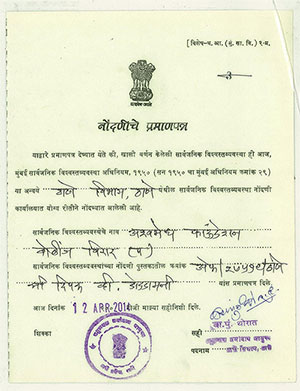 [विशेष-ध. आ. (मुं. सा. वि.) १-म.
सत्यमेव जयते
नोंदणीचे प्रमाणपत्र
याद्वारे प्रमाणपत्र देण्यात येते की, खाली वर्णन केलेली सार्वजनिक विश्वस्तव्यवस्था ही आज,
मुंबई सार्वजनिक विश्वस्तव्यवस्था अधिनियम, १९५० (सन १९५० चा मुंबई अधिनियम क्रमांक २९)
या अन्वये ठाणे विभाग ठाणे येथील सार्वजनिक विश्वस्तव्यवस्था नोंदणी
कार्यालयात योग्य रीतीने नोंदण्यात आलेली आहे.
सार्वजनिक विश्वस्तव्यवस्थेचे नाव अश्वमेध फाऊंडेशन
बोळींज विरार (प)
सार्वजनिक विश्वस्तव्यवस्थांच्या नोंदणी पुस्तकातील क्रमांक
श्री दिपक व्ही. यांस प्रमाणपत्र दिले.
आज दिनांक 12 APR 2011 माझ्या सहीनिशी दिले.
शिक्का
सही
वा.पुं. थोरात
पदनाम